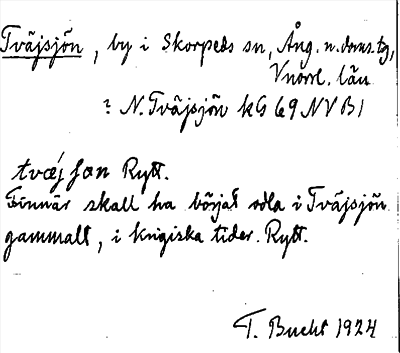 Tväjsjön, by i Skorpeds sn, Ång. n. doms. tg,
Vnorrl. län
? N. Tväjsjön kG 69 NV B1
tvǽjʃøn Rytt.
Finnar skall ha börjat odla i Tväjsjön
gammalt, i krigiska tider. Rytt.
T. Bucht 1924